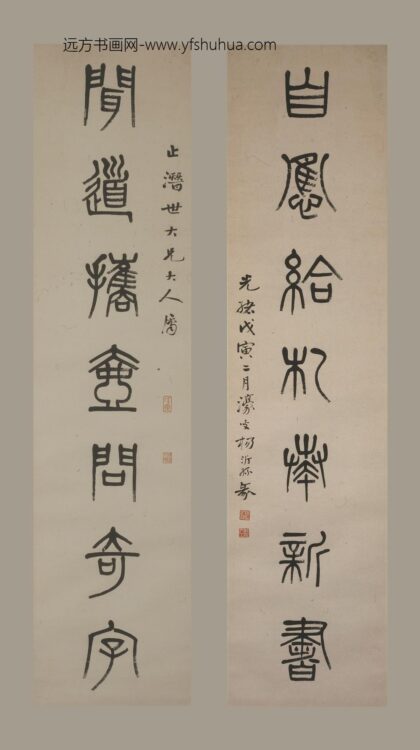 远方书画网-www.yfshuhua.com
自應給札捧新書
光緒戊寅二月濠叟楊沂孫篆
止潛世大兄大人屬
聞道攜壺問奇字